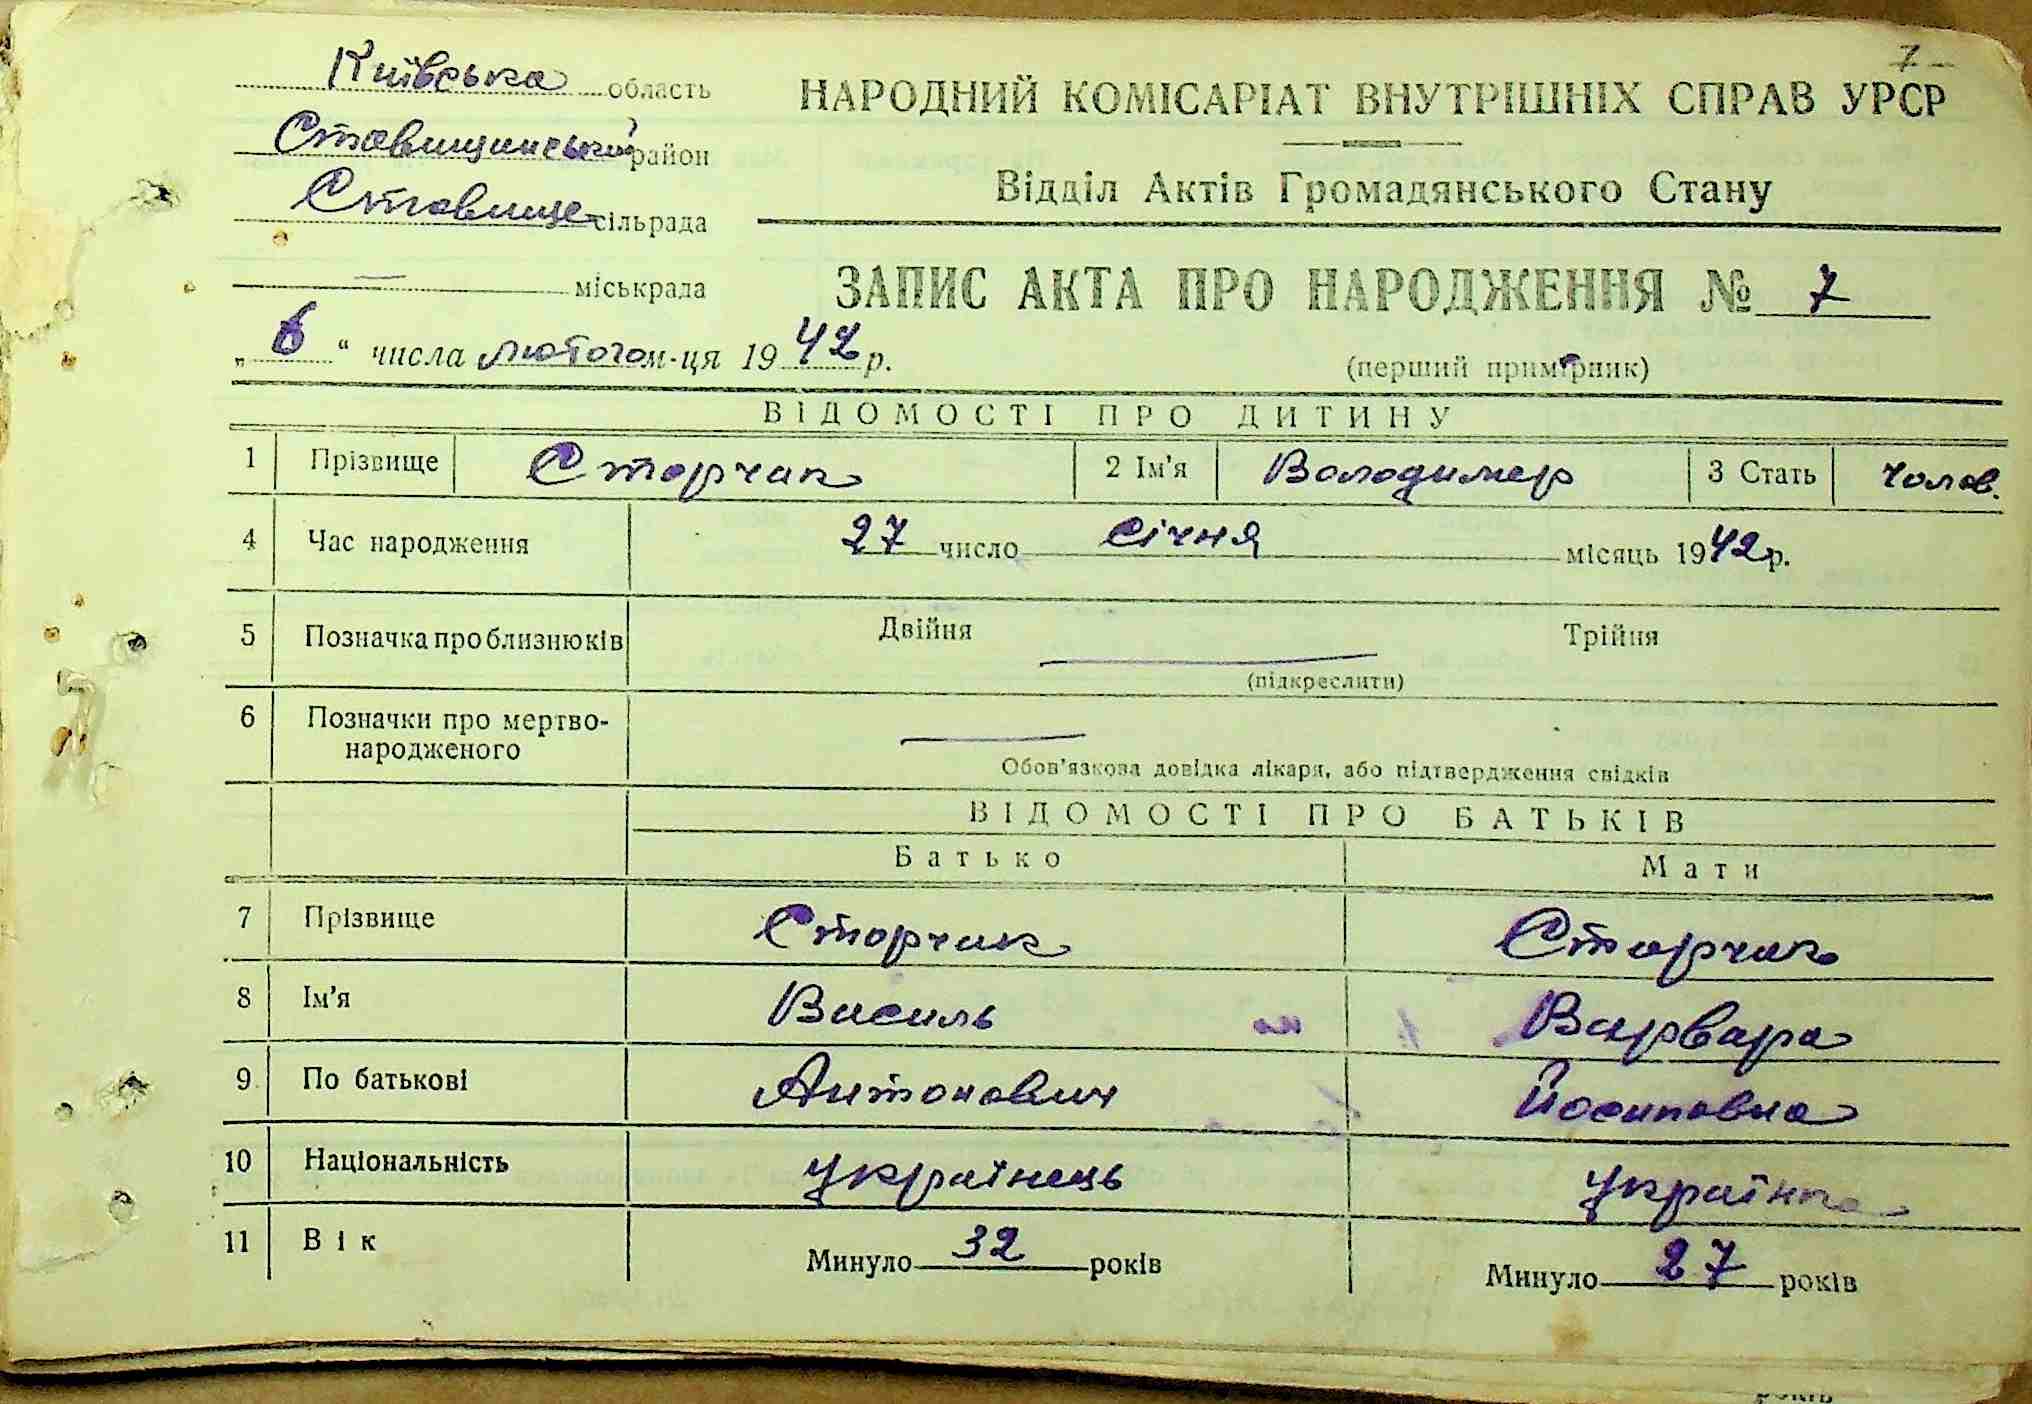 7
Київська область
Ставищинський район
Ставище сільрада
— міськрада
„6“ числа лютого м-ця 1942 р.
НАРОДНИЙ КОМІСАРІАТ ВНУТРІШНІХ СПРАВ УРСР
Відділ Актів Громадянського Стану
ЗАПИС АКТА ПРО НАРОДЖЕННЯ № 7
(перший примірник)
ВІДОМОСТІ ПРО ДИТИНУ
1 Прізвище Сторчак 2 Ім'я Володимер 3 Стать Чолов.
4 Час народження 27 число Січня місяць 1942 р.
5 Позначка про близнюків Двійня Трійня
(підкреслити)
6 Позначки про мертво-
народженого
Обов'язкова довідка лікаря, або підтвердження свідків
ВІДОМОСТІ ПРО БАТЬКІВ
Батько Мати
7 Прізвище Сторчак Сторчак
8 Ім'я Василь Варвара
9 По батькові Антонович Йосиповна
10 Національність українець українка
11 Вік Минуло 32 років Минуло 27 років